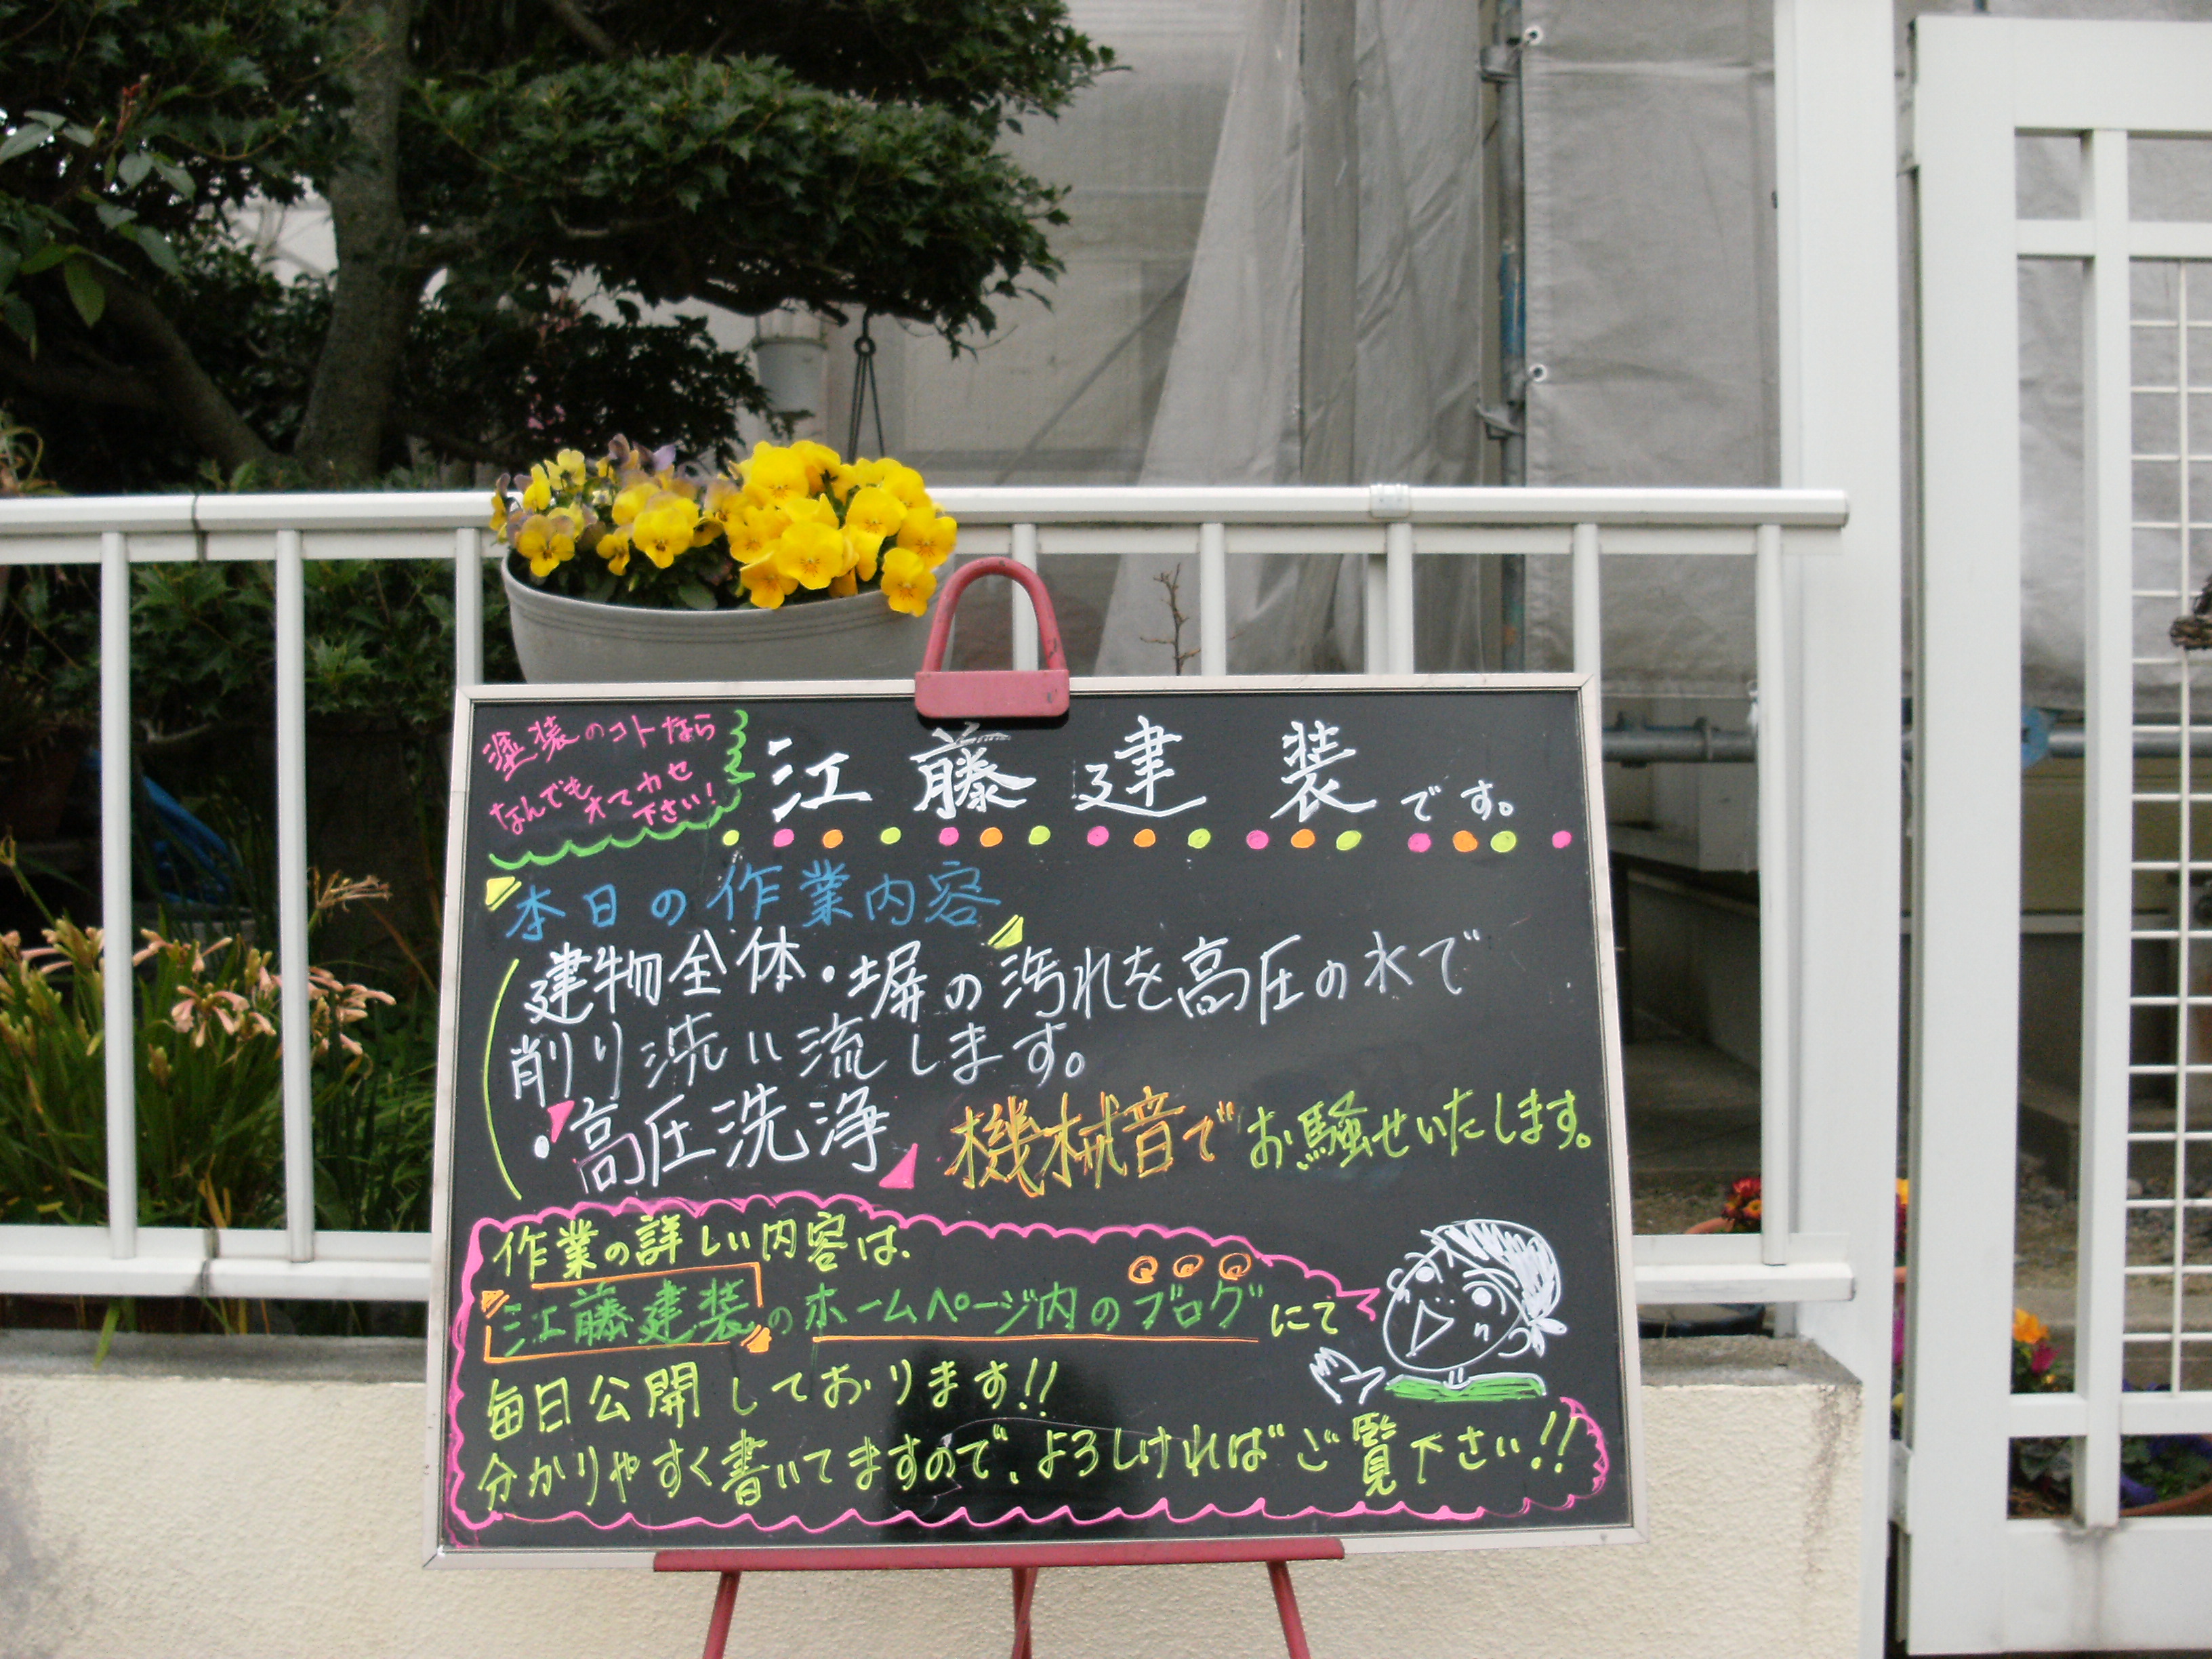 塗装のコトなら
なんでもオマカセ
下さい!
江藤建装です。
本日の作業内容
建物全体・塀の汚れを高圧の水で
削り洗い流します。
・高圧洗浄
機械音でお騒せいたします。
作業の詳しい内容は、
江藤建装のホームページ内のブログにて
毎日公開しております!!
分かりやすく書いてますので、よろしければご覧下さい!!